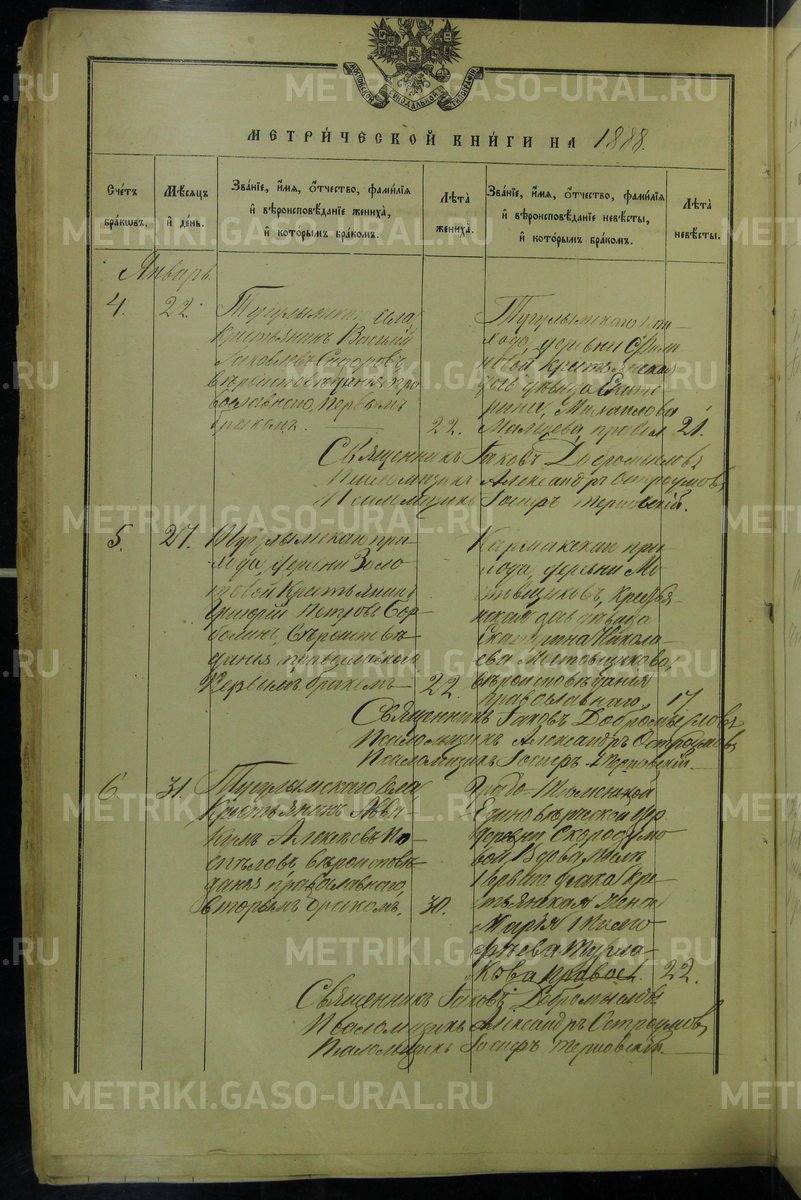 МЕТРИ́ЧЕСКОЙ КНИ́ГИ НА 1888.
Сче́тъ бра́кωвъ.
Мѣ́сяцъ и҆ де́нь.
Зва́нїе, и҆́мя, ѻ҆́тчество, фами́лїя
и҆ вѣроисповѣ́данїе жениха̀,
и҆ кото́рымъ бра́комъ.
Лѣта̀ жениха̀.
Зва́нїе, и҆́мя, ѻ҆́тчество, фами́лїя
и҆ вѣроисповѣ́данїе невѣ́сты,
и҆ кото́рымъ бра́комъ.
Лѣта̀ невѣ́сты.
Январь
4.
22.
села
Крестьянинъ Василій
Яковлевъ Сидоровъ
вѣроисповѣданія пра
вославнаго, первымъ
бракомъ.
22.
Тугулымскаго при-
хода, деревни
крестьянская
дочь дѣвица Екате
рина Михайлова
21.
Священникъ Іаковъ Добромысловъ
Псаломщикъ Александръ Остроумовъ
Псаломщикъ Іосифъ Терновскій.
5.
27.
при-
хода, деревни Золо
товой Крестьянинъ
Григорій Петровъ
вѣроисповѣ
данія православнаго
Первымъ бракомъ
22.
Кармакскаго при-
хода, деревни Мо
товщиковъ, Кресть-
янская дочь дѣвица
Екатерина Никола-
ева Мотовщикова,
вѣроисповѣданія
православнаго,
17
Священникъ Іаковъ Добромысловъ
Псаломщикъ Александръ Остроумовъ
Псаломщикъ Іосифъ Терновскій.
6.
31.
Тугулымскаго села
Крестьянинъ Авва-
кумъ Алексѣевъ По-
спѣловъ вѣроисповѣ-
данія православнаго,
вторымъ бракомъ.
30.
Единовѣрческой
деревни Скородумо
вой Вдова послѣ
перваго брака Кре-
стьянская Жена
Марія
Кова правосл.
22.
Священникъ Іаковъ Добромысловъ
Псаломщикъ Александръ Остроумовъ
Псаломщикъ Іосифъ Терновскій.
METRIKI.GASO-URAL.RU